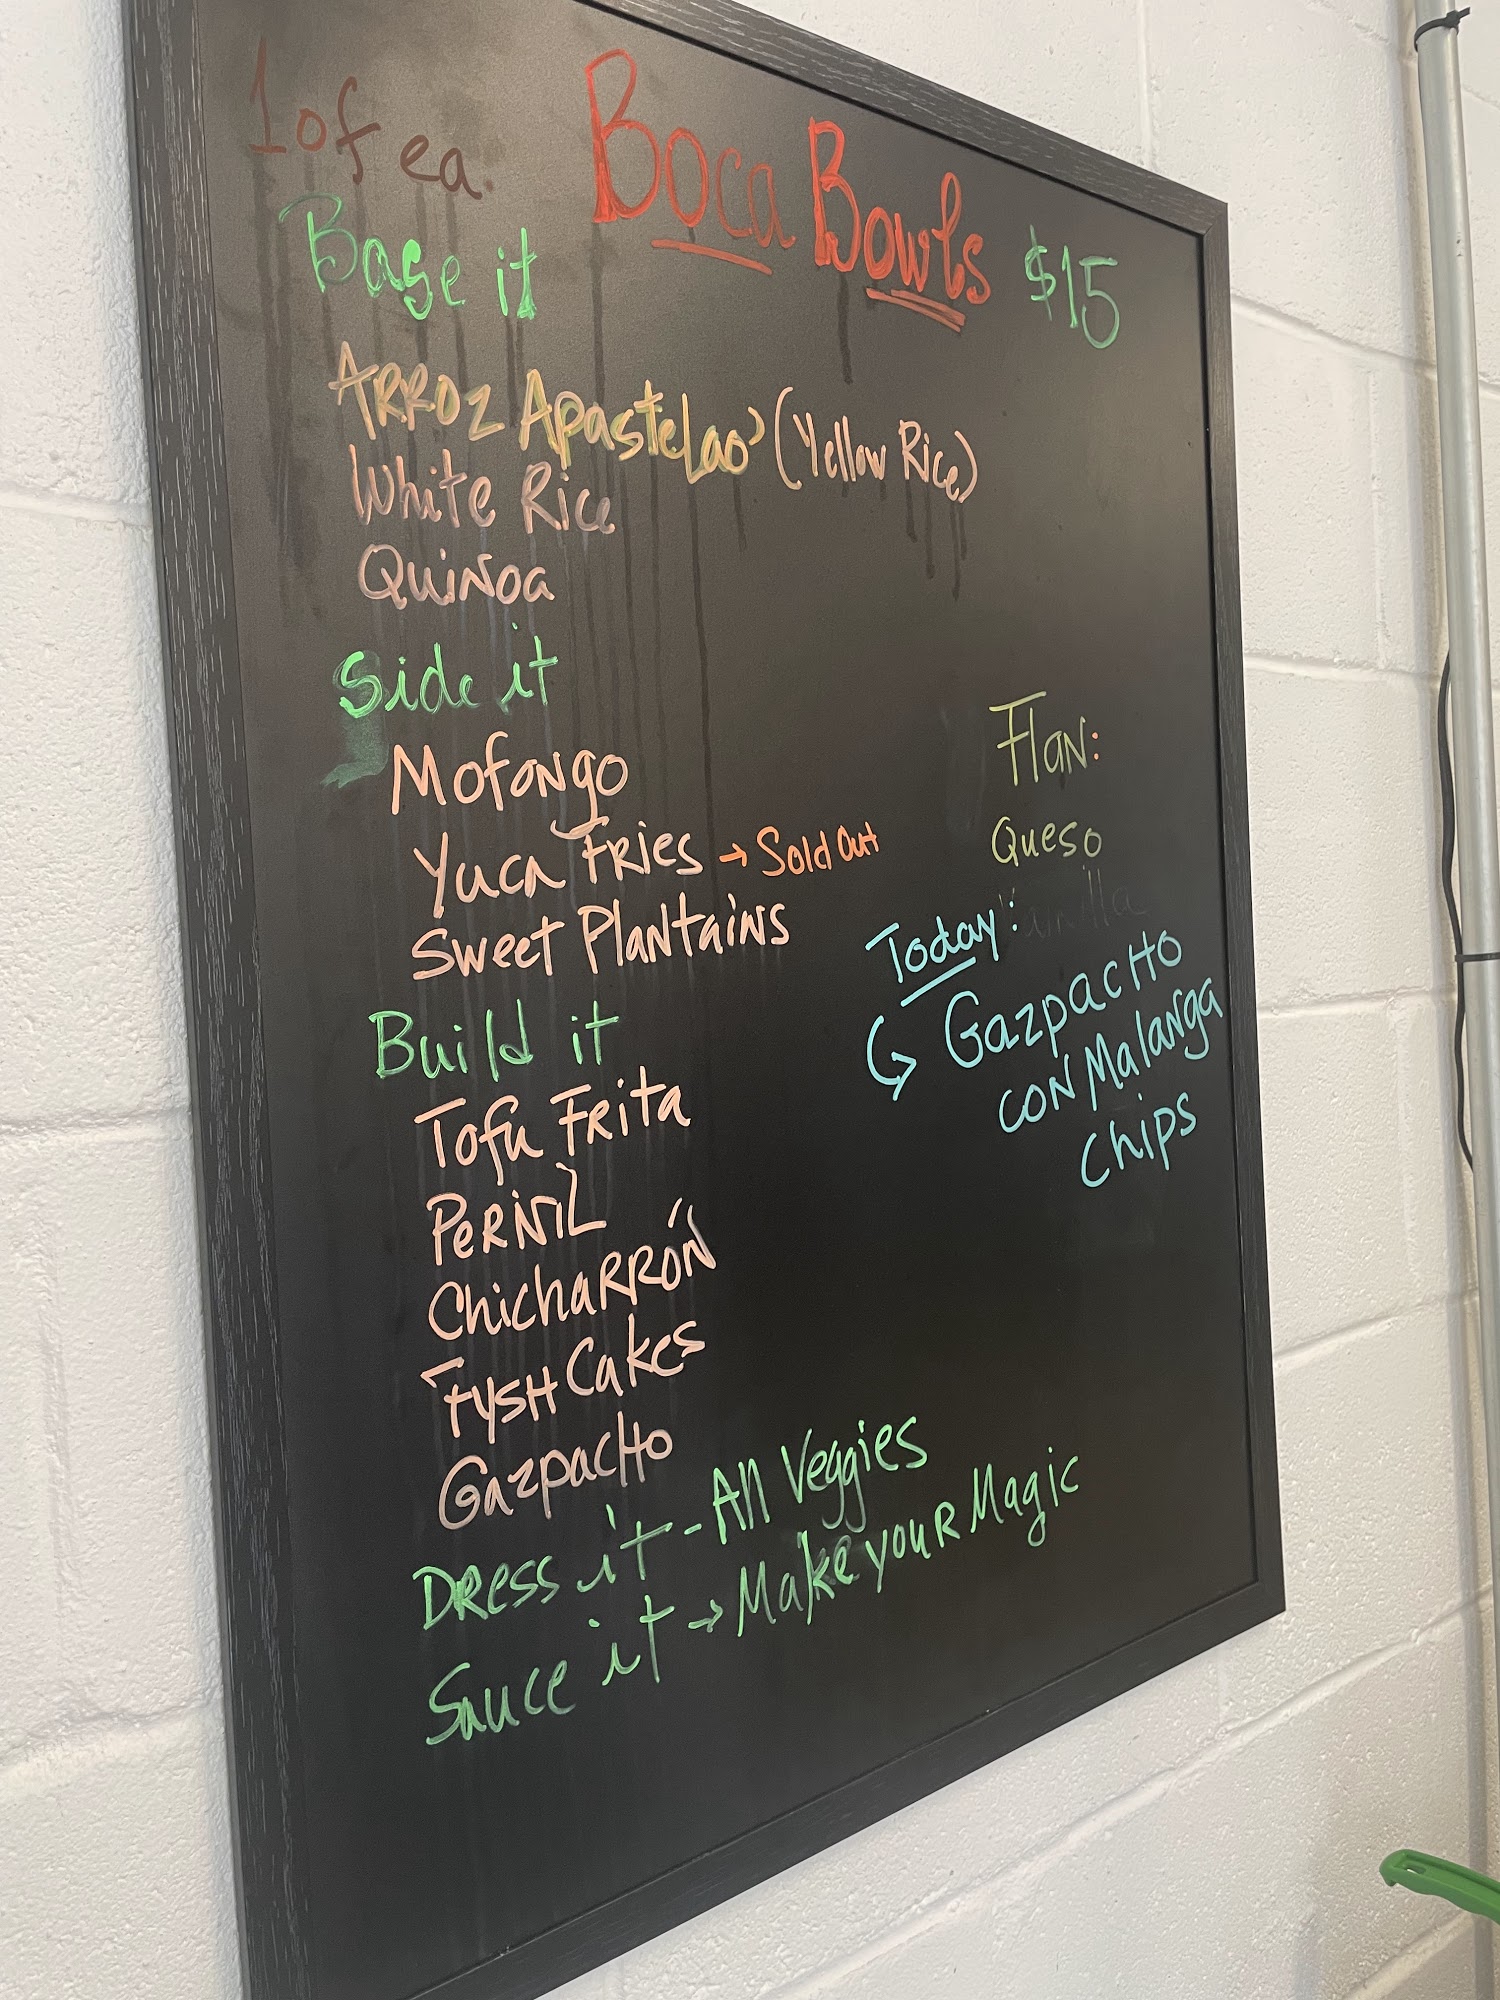 1 of ea.
Boca Bowls $15
Base it
Arroz Apastelao' (Yellow Rice)
White Rice
Quinoa
Side it
Mofongo
Yuca Fries → Sold Out
Sweet Plantains
Build it
Tofu Frita
Pernil
Chicharrón
Fysh Cakes
Gazpacho
Dress it - All Veggies
Sauce it → Make your Magic
Flan:
Queso
Vanilla
Today:
↳ Gazpacho
con Malanga
Chips